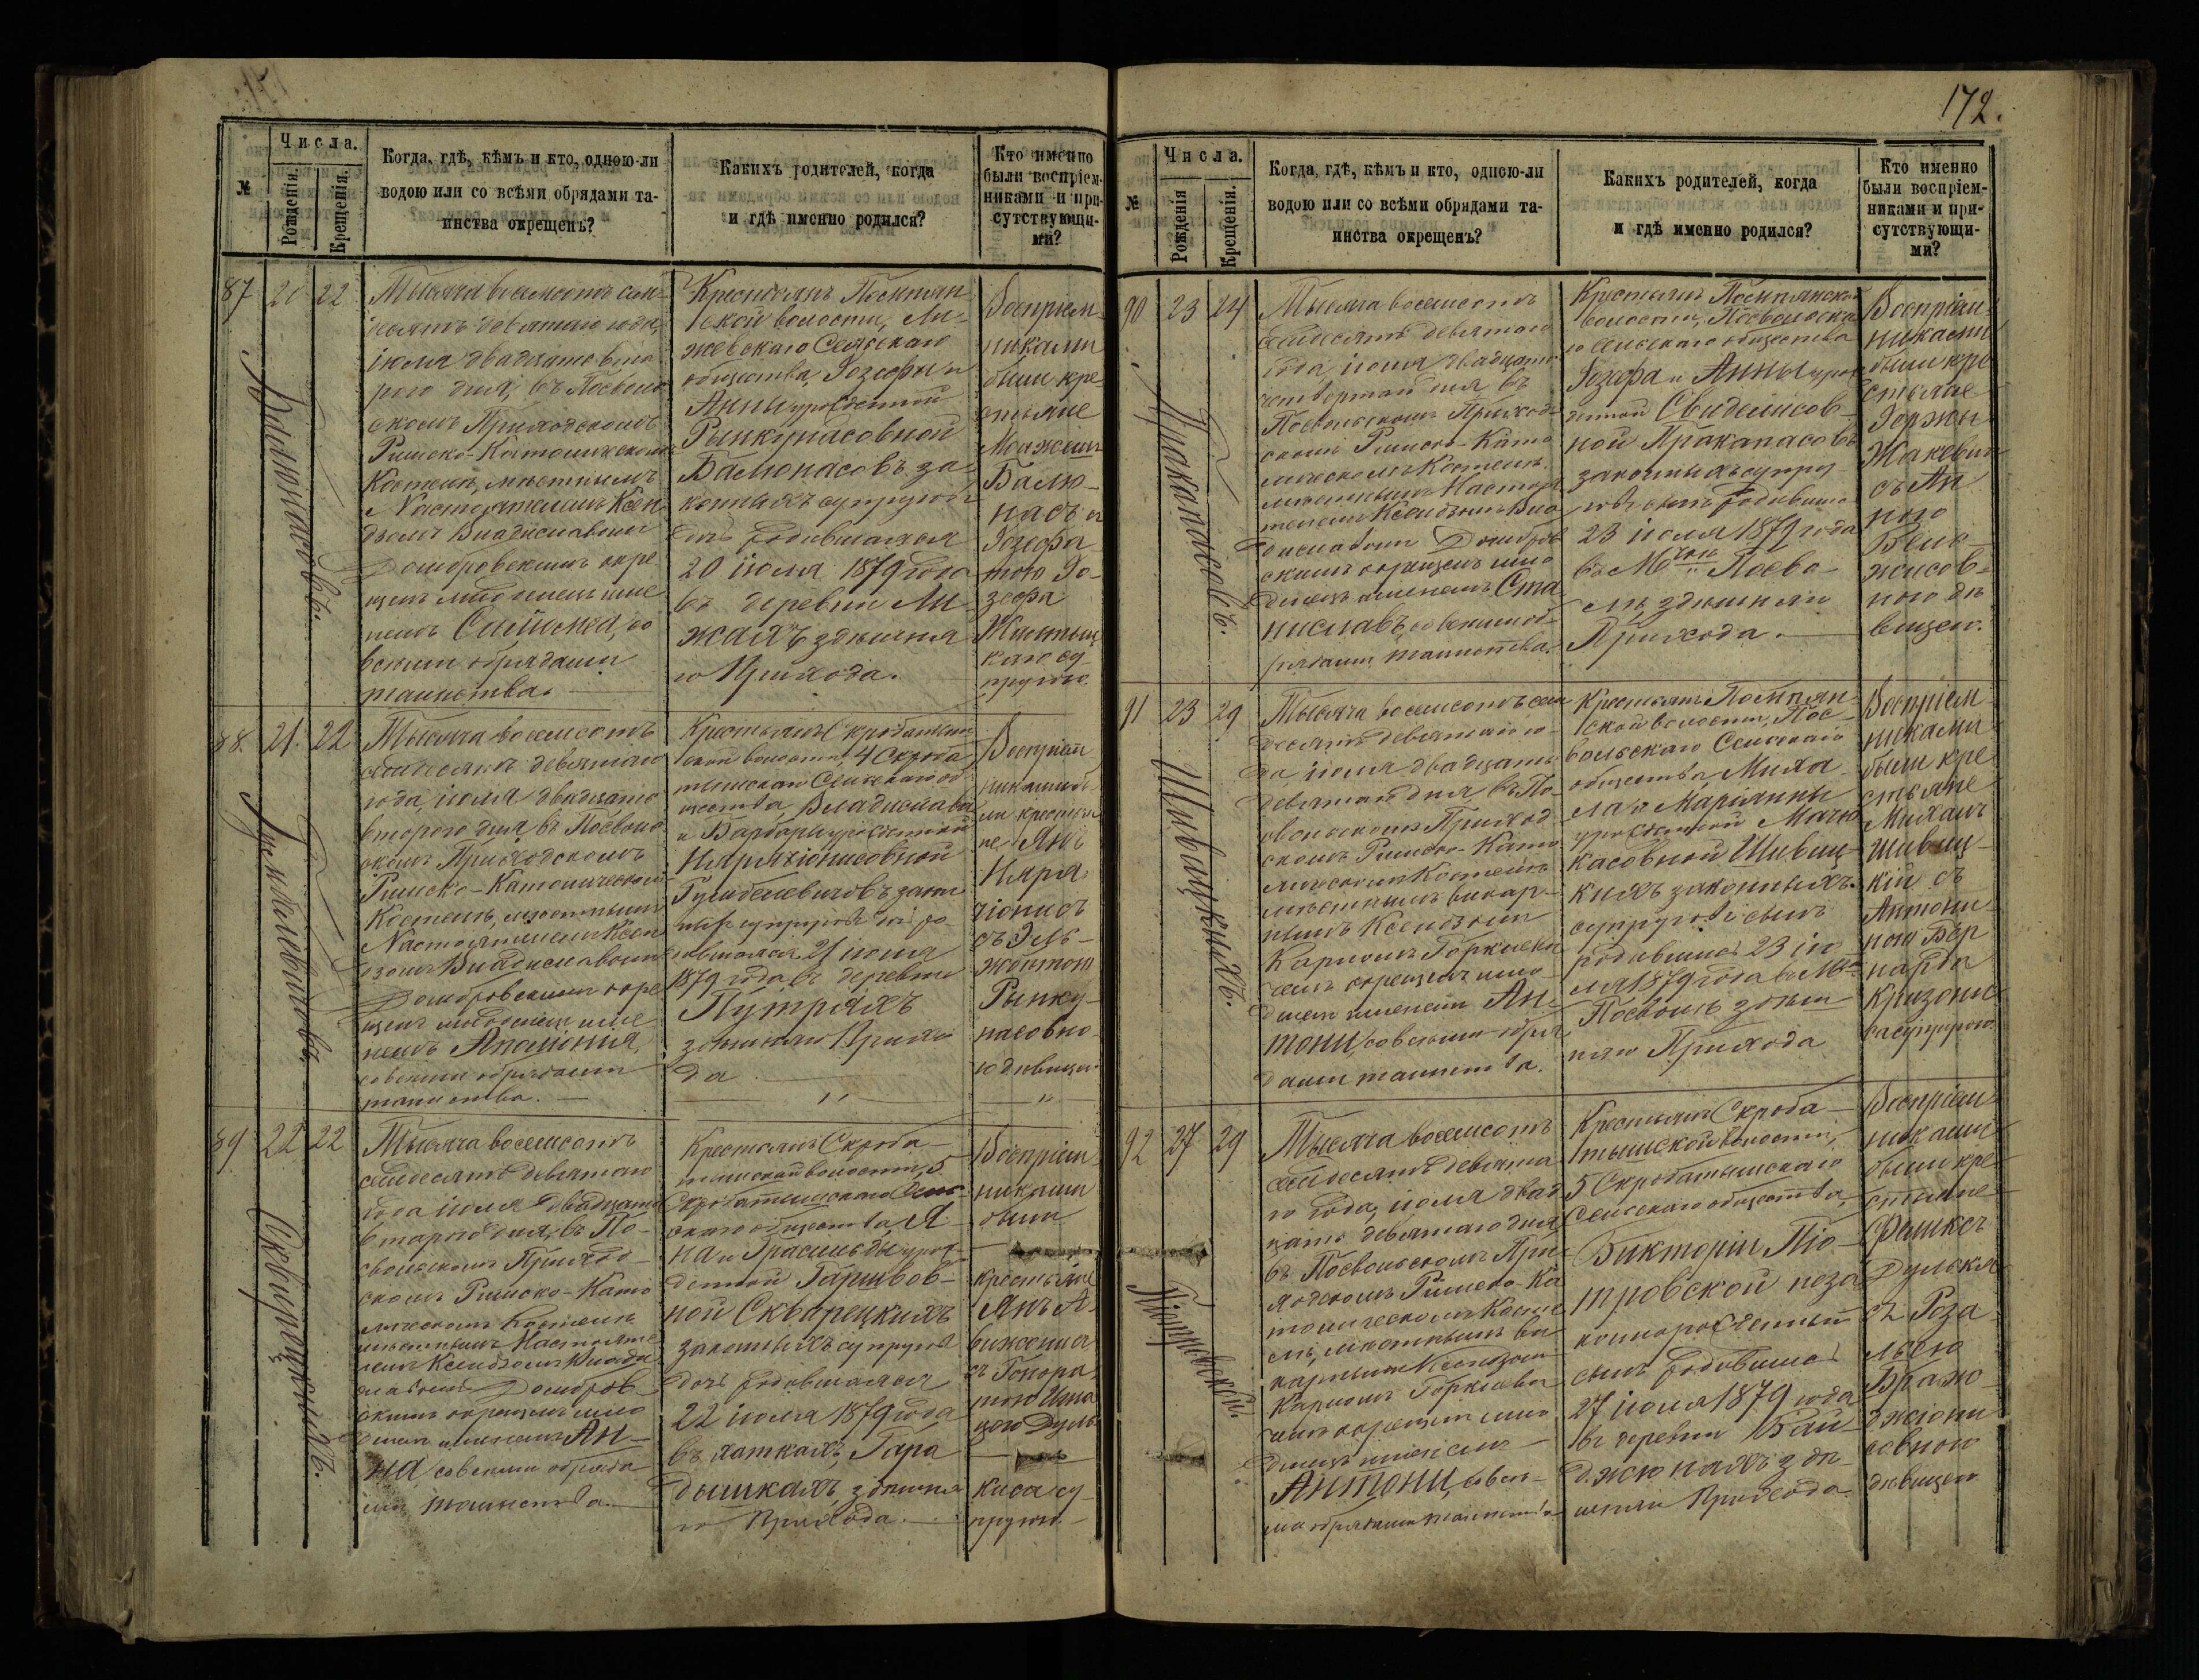 172.
№
Числа.
Рожденія.
Крещенія.
Когда, гдѣ, кѣмъ и кто, одною-ли
водою или со всѣми обрядами та-
инства окрещенъ?
Какихъ родителей, когда
и гдѣ именно родился?
Кто именно
были воспріем-
никами и при-
сутствующи-
ми?
87
20
22
Балюнасовъ.
Тысяча восемьсотъ сем-
десятъ девятаго года,
іюля двадцать вто
рого дня, въ Посволь
скомъ Приходскомъ
Римско-Католическомъ
Костелѣ, мѣстнымъ
Настоятелемъ Ксен
дзомъ Владиславомъ
Домбровскимъ окре
щенъ младенецъ име
немъ со
всѣми обрядами
таинства.
Крестьянъ Помпян-
ской волости, Ли-
жевскаго Сельскаго
общества, Іозефы и
Анны урожденной
Рынкунасовной
Балюнасовъ за
конныхъ супруговъ
дочь родившаяся
20 іюля 1879 года
въ деревни Ли-
жаяхъ здѣшня
го Прихода.
Воспріем-
никами
были кре
стьяне
Балю-
насъ и
Іозефа
тою Іо-
зефа
каго су-
пругою.
88.
21.
22
Гумбелевичовъ
Тысяча восемьсотъ
семдесятъ девятаго
года, іюля двадцать
второго дня, въ Посволь
скомъ Приходскомъ
Римско-Католическомъ
Костелѣ, мѣстнымъ
Настоятелемъ Ксен
дзомъ Владиславомъ
Домбровскимъ окре
щенъ младенецъ име
немъ Апалонія,
со всѣми обрядами
таинства.
Крестьянъ Скробатыш
ской волости, 4 Скроба
тышскаго Сельскаго об
щества, Владислава
и Барбары урожденной
Нярячіонисовной
Гумбелевичовъ закон
ныхъ супруговъ дочь ро
дившаяся 21 іюля
1879 года въ деревни
Путряхъ
здѣшняго Прихо
да
Воспріем
никами бы
ли крестья
не Янъ
Няря
чіонисъ
съ Эль-
жбетою
Рынку-
насовно-
ю дѣвицею
89
22
22
Скварецкихъ.
Тысяча восемьсотъ
семдесятъ девятаго
года іюля двадцать
второго дня, въ По-
свольскомъ Приход-
скомъ Римско-Като
лическомъ Костелѣ
мѣстнымъ Настояте
лемъ Ксендзомъ Влади
славомъ Домбров-
скимъ окрещенъ мла
денецъ именемъ Ан-
на со всѣми обряда
ми таинства.
Крестьянъ Скроба-
тышской волости, 5
Скробатышскаго Сель-
скаго общества Я-
на и Грасильды урож-
денной
ной Скварецкихъ
законныхъ супруговъ
дочь родившаяся
22 іюля 1879 года
въ хаткахъ, Гара
дышкахъ, здѣшня
го Прихода.
Воспріем-
никами
были
крестьяне
Янъ
съ Гонора
тою Игна
цого Дуль
киса су-
пругою.
№
Числа.
Рожденія
Крещенія.
Когда, гдѣ, кѣмъ и кто, одною-ли
водою или со всѣми обрядами та-
инства окрещенъ?
Какихъ родителей, когда
и гдѣ именно родился?
Кто именно
были воспріем-
никами и при-
сутствующи-
ми?
90
23
24
Пракапасовъ.
Тысяча восемьсотъ
семдесятъ девятаго
года іюля двадцать
четвертаго дня въ
Посвольскомъ Приход-
скомъ Римско-Като
лическомъ Костелѣ,
мѣстнымъ Настоя
телемъ Ксендзомъ Вла
диславомъ Домбров
скимъ окрещенъ мла
денецъ именемъ Ста
ниславъ, со всѣми об-
рядами таинства.
Крестьянъ Помпянской
волости, Посвольска
го Сельскаго общества
Іозефа и Анны урож
денной Свиделисов-
ной Пракапасовъ
законныхъ супру-
говъ сынъ родившійся
23 іюля 1879 года
въ Посво-
лѣ, здѣшняго
Прихода.
Воспріем-
никами
были кре
стьяне
съ Ан
ною
ною дѣ
вицею.
91
23
29
Шивицкихъ.
Тысяча восемьсотъ сем
десятъ девятаго го-
да, іюля двадцать
девятаго дня въ По-
свольскомъ Приход
скомъ Римско-Като
лическомъ Костелѣ
мѣстнымъ викар-
нымъ Ксендзомъ
Каролемъ
окрещенъ мла-
денецъ именемъ Ан-
тони, со всѣми обря
дами таинства.
Крестьянъ Помпян-
ской волости, Пос-
вольскаго Сельскаго
общества, Миха
ла и Маріянны
урожденной Мачю
касовной Шивиц-
кихъ законныхъ
супруговъ сынъ
родившійся 23 ію
ля 1879 года въ
Посволѣ здѣш
няго Прихода
Воспріем
никами
были кре
стьяне
Михалъ
Шивиц-
кій съ
Антони-
ною Бер
нарда
супругою.
92
27
29
Піотровской.
Тысяча восемьсотъ
семдесятъ девята
го года, іюля двад
цать девятаго дня
въ Посвольскомъ При
ходскомъ Римско-Ка
толическомъ Косте
лѣ, мѣстнымъ ви
карнымъ Ксендзомъ
Каролемъ
окрещенъ мла
денецъ именемъ
Антони, со всѣ-
ми обрядами таинства
Крестьянъ Скроба-
тышской волости,
5 Скробатышскаго
Сельскаго общества,
Викторіи Піо-
тровской неза
коннорожденный
сынъ родившійся
27 іюля 1879 года
въ деревни Бай-
джюнахъ здѣ-
шняго Прихода.
Воспріем
никами
были кре
стьяне
съ Роза
лією
дѣвицею